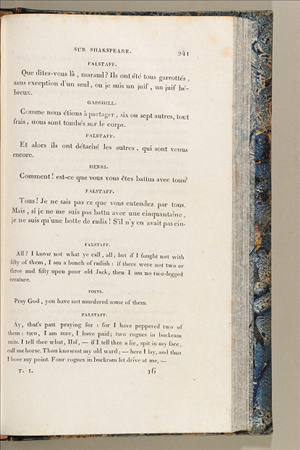 SUR SHAKSPEARE. 241
FALSTAFF.
Que dites-vous là, maraud? Ils ont été tous garrottés,
sans exception d'un seul, ou je suis un juif, un juif hé-
breux.
GADSHILL.
Comme nous étions à partager, six ou sept autres, tout
frais, nous sont tombés sur le corps.
FALSTAFF.
Et alors ils ont détaché les autres, qui sont venus
encore.
HENRI.
Comment! est-ce que vous vous êtes battus avec tous?
FALSTAFF.
Tous! Je ne sais pas ce que vous entendez par tous.
Mais, si je ne me suis pas battu avec une cinquantaine,
je ne suis qu'une botte de radis! S'il n'y en avait pas cin-
FALSTAFF.
All? I know not what ye call, all; but if I fought not with
fifty of them, I am a bunch of radish: if there were not two or
three and fifty upon poor old Jack, then I am no two-legged
creature.
POINS.
Pray God, you have not murdered some of them.
FALSTAFF.
Ay, that's past praying for: for I have peppered two of
them: two, I am sure, I have paid; two rogues in buckram
suits. I tell thee what, Hal, — if I tell thee a lie, spit in my face,
call me horse. Thou knowest my old ward; — here I lay, and thus
I bore my point. Four rogues in buckram let drive at me, —
T. I. 16